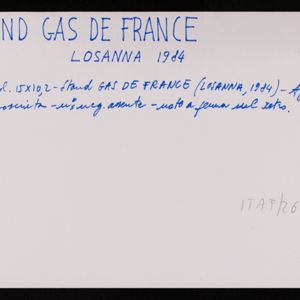 ND GAS DE FRANCE
LOSANNA 1984
. 15x10,2 - Stand GAS DE FRANCE (LOSANNA, 1984) -
- n° neg. assente - nota a penna sul retro.
ITAT/26